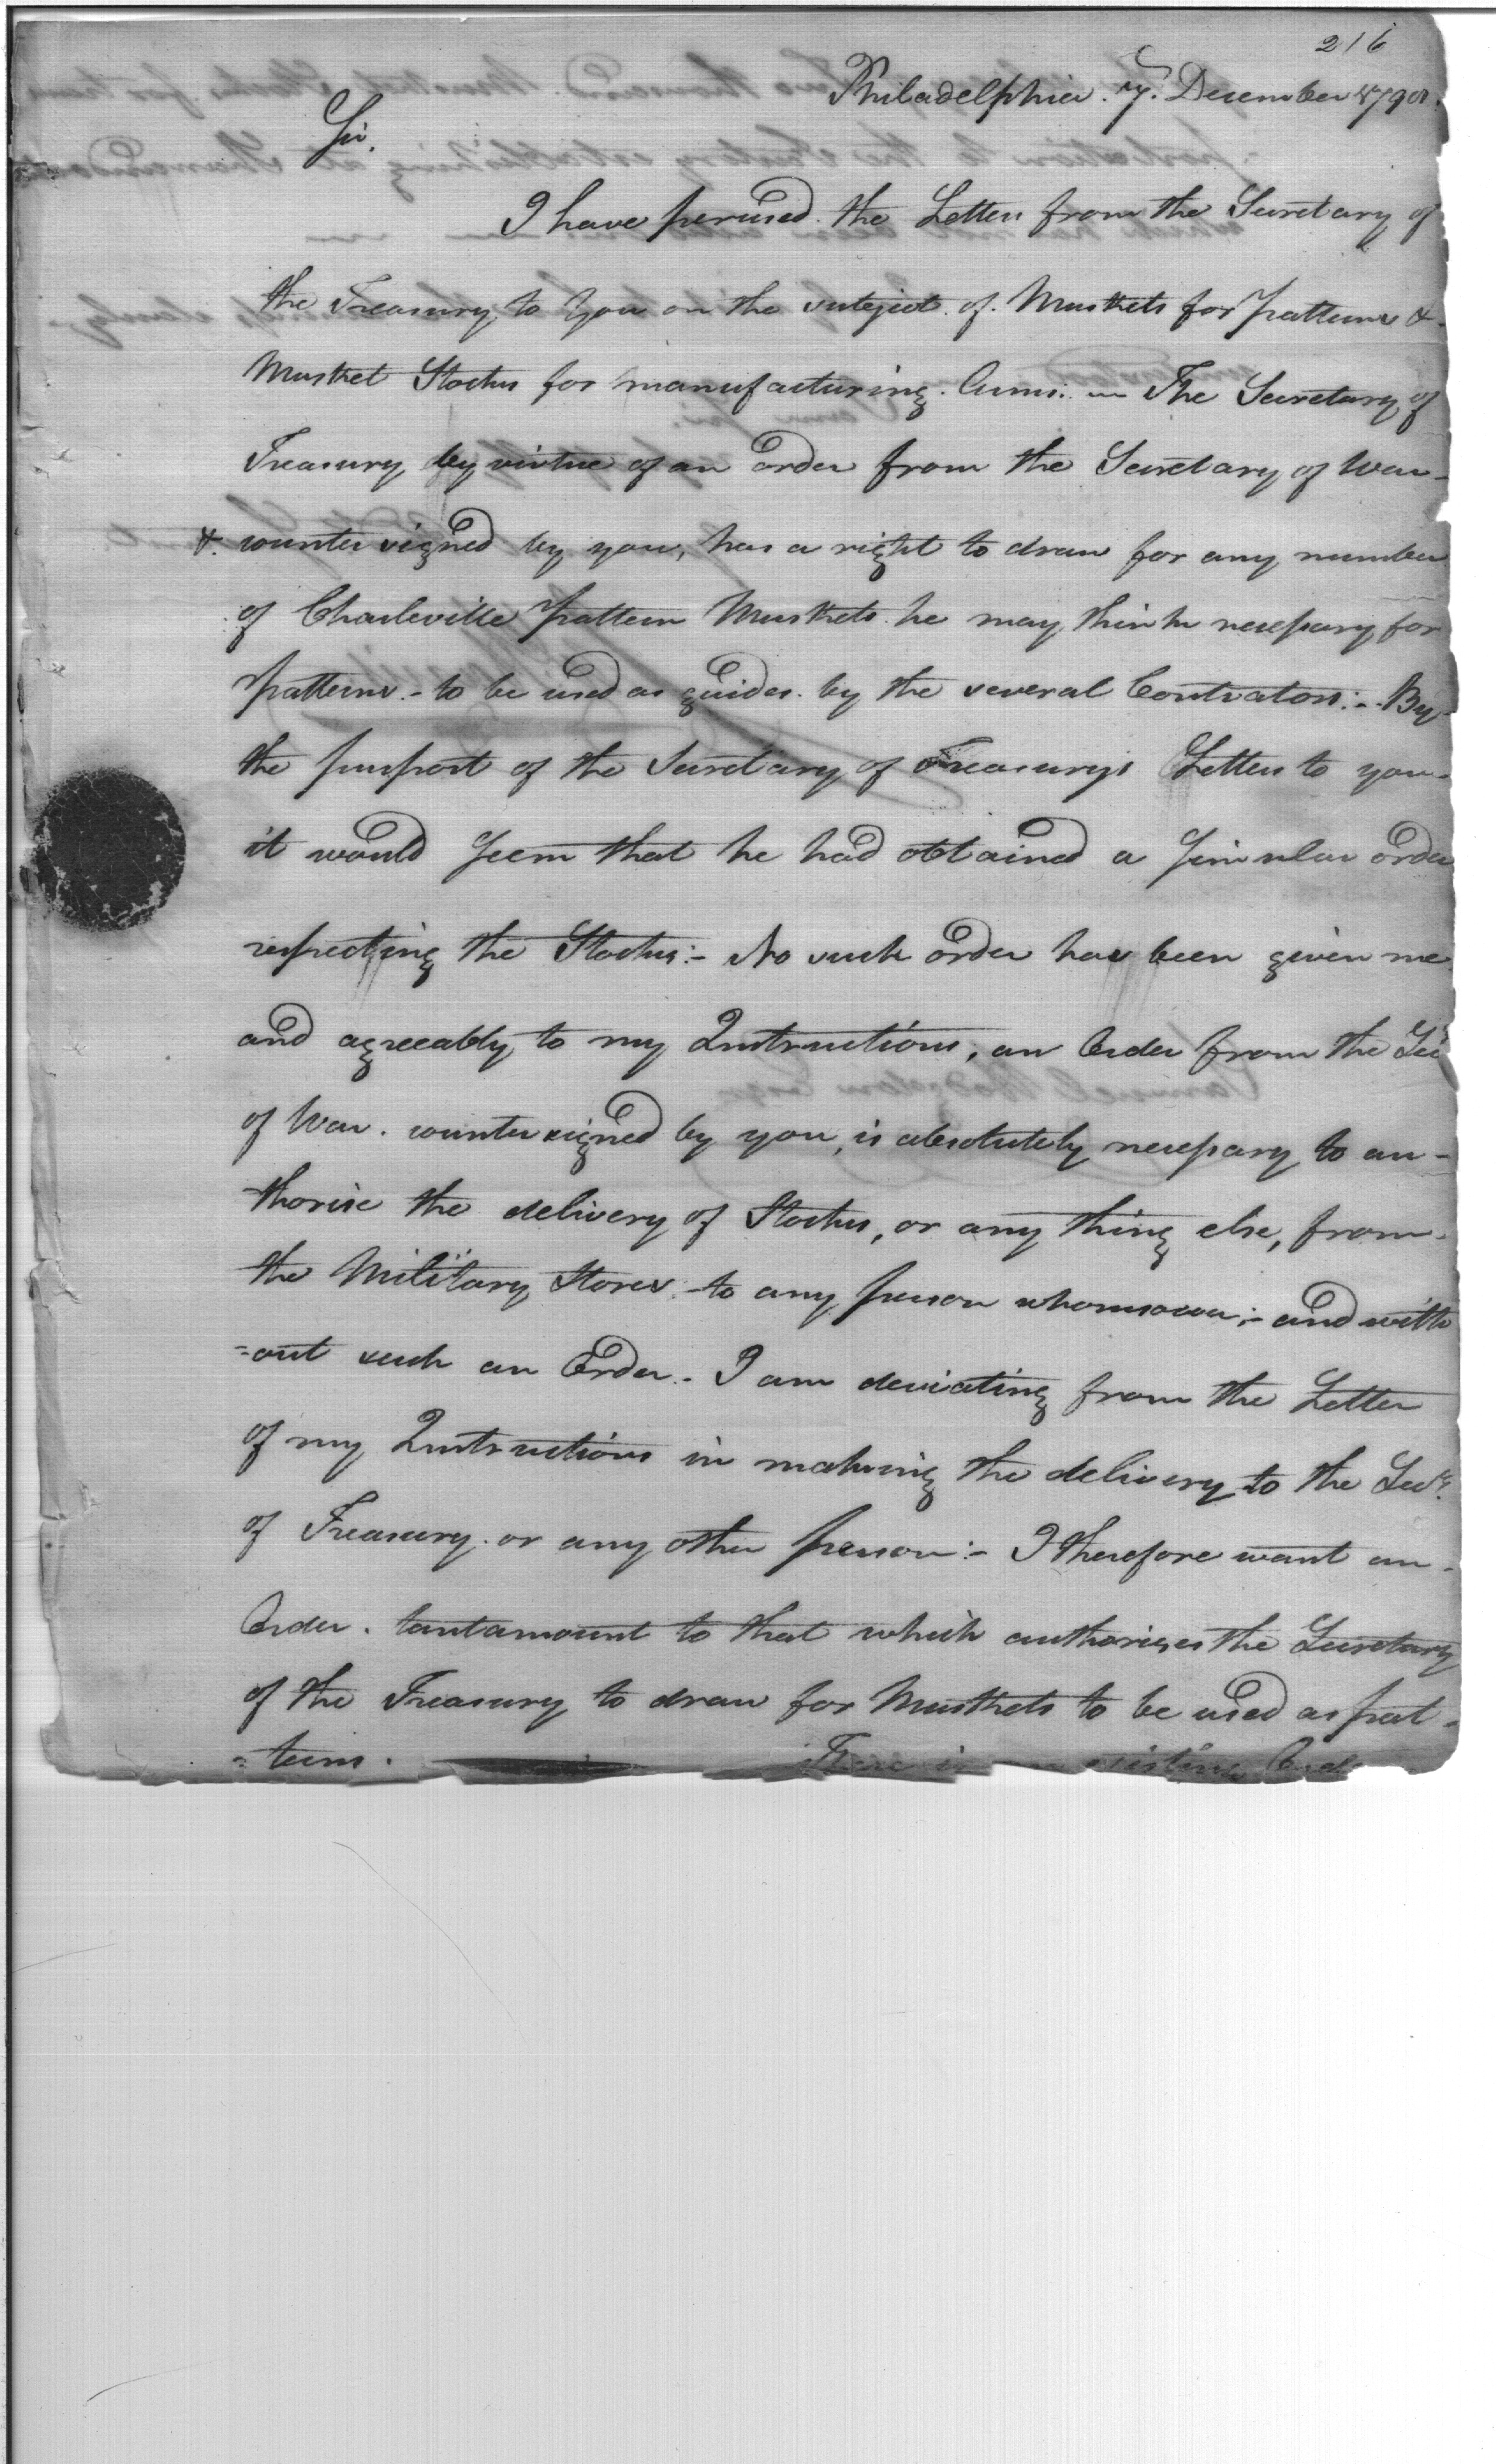 216
Philadelphia. 7. December 1798.
Sir.
I have perused. the Letter from the Secretary of
the Treasury, to You on the subject. of. Muskets for patterns &
Musket Stocks for manufacturing. Arms:. — The Secretary of
Treasury, by virtue of an order from the Secretary of War -
&. counter signed by you, has a right to draw for any number
of Charleville pattern Muskets. he may think necessary for
patterns. - to be used as guides. by the several Contrators:-. By
the purport of the Secretary of Treasurys Letter to you -
it would seem that he had obtained a similar order
respecting the Stocks:- No such order has been given me
and agreeably to my Instructions, an Order from the Sec
of War. countersigned by you, is absolutely necessary to au-
thorise the delivery of Stocks, or any thing else, from.
the Military Stores. - to any person whomsoever;- and with
=out such an Order. - I am deviating from the Letter
of my Instructions in making the delivery to the Secy.
of Treasury. or any other person:- I therefore want an.
Order. tantamount to that which authorises the Secretary
of the Treasury to draw for Muskets to be used as pat-
=terns. There is existing Order